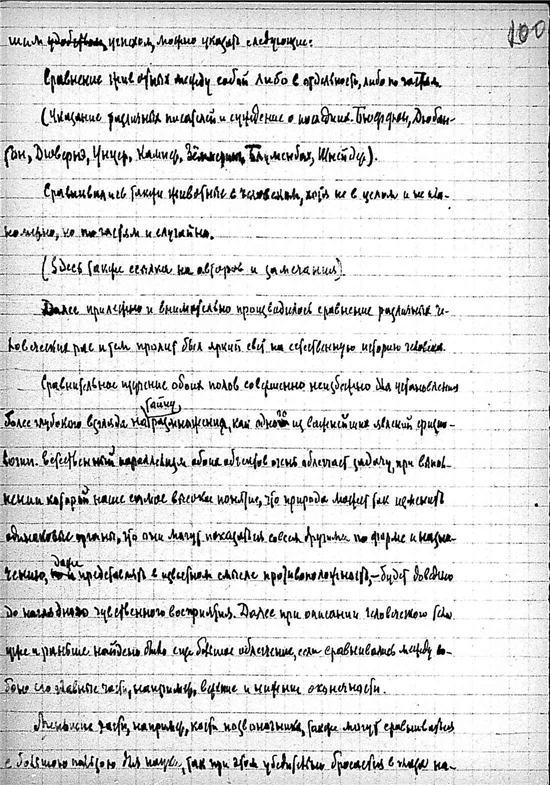 100
шим удобством, успехом, можно указать следующие:
Сравнение животных между собой либо в отдельности, либо по частям.
(Указание различных писателей и суждение о последних. Бюффон, Добан-
тон, Дюверне, Унцер, Кампер, Зёммеринг, Блуменбах, Шнейдер).
Сравнивались также животные с человеком, хотя не в целом и не пла-
номерно, но по частям и случайно.
(Здесь также ссылка на авторов и замечания).
Далее прилежно и внимательно производилось сравнение различных че-
ловеческих рас и тем пролит был яркий свет на естественную историю человека.
Сравнительное изучение обоих полов совершенно неизбежно для установления
более глубокого взгляда на тайну размножения, как одного из важнейших явлений физио-
логии. Естественный параллелизм обоих объектов очень облегчает задачу, при выпол-
нении которой наше самое высокое понятие, что природа может так изменить
одинаковые органы, что они могут показаться совсем другими по форме и назна-
чению, даже представлять в известном смысле противоположность, — будет доведено
до наглядного чувственного восприятия. Далее при описании человеческого тела
уже и раньше найдено было еще большое облегчение, если сравнивались между со-
бою его главные части, например, верхние и нижние оконечности.
Меньшие части, например, кости позвоночника, также могут сравниваться
с большою пользою для науки, так при этом убедительно бросается в глаза на-